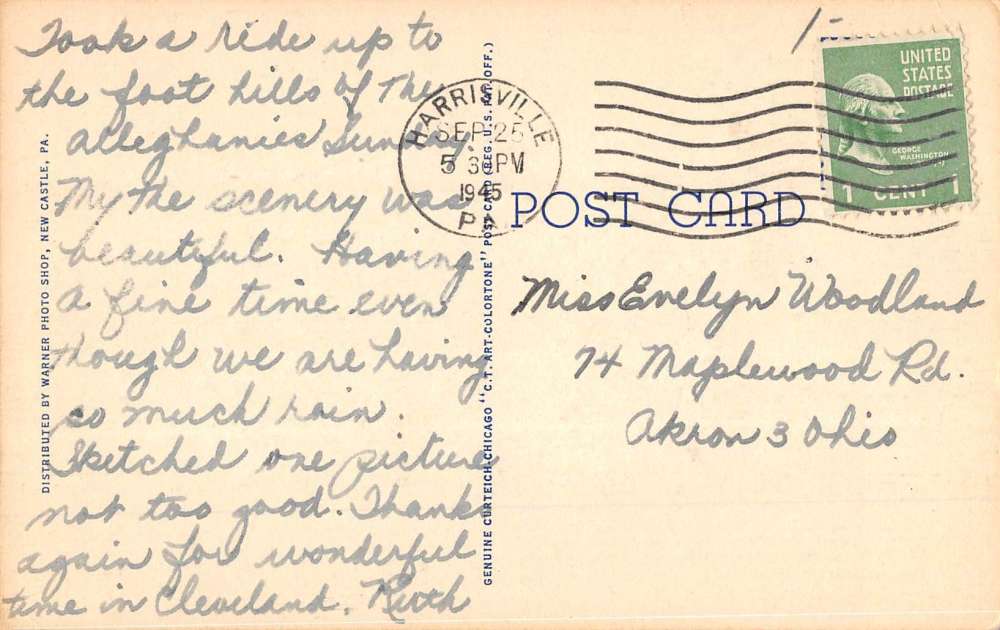 Took a ride up to
the foot hills of the
Alleghanies Sunday.
My the scenery was
beautiful. Having
a fine time even
though we are having
so much rain.
Sketched one picture
not too good. Thanks
again for wonderful
time in Cleveland. Ruth
DISTRIBUTED BY WARNER PHOTO SHOP, NEW CASTLE, PA.
GENUINE CURTEICH-CHICAGO "C.T. ART-COLORTONE" POST CARD (REG. U.S. PAT. OFF.)
HARRISVILLE
SEP 25
5 30 PM
1945
PA
1-
UNITED
STATES
POSTAGE
GEORGE
WASHINGTON
1 CENT 1
POST CARD
Miss Evelyn Woodland
74 Maplewood Rd.
Akron 3 Ohio